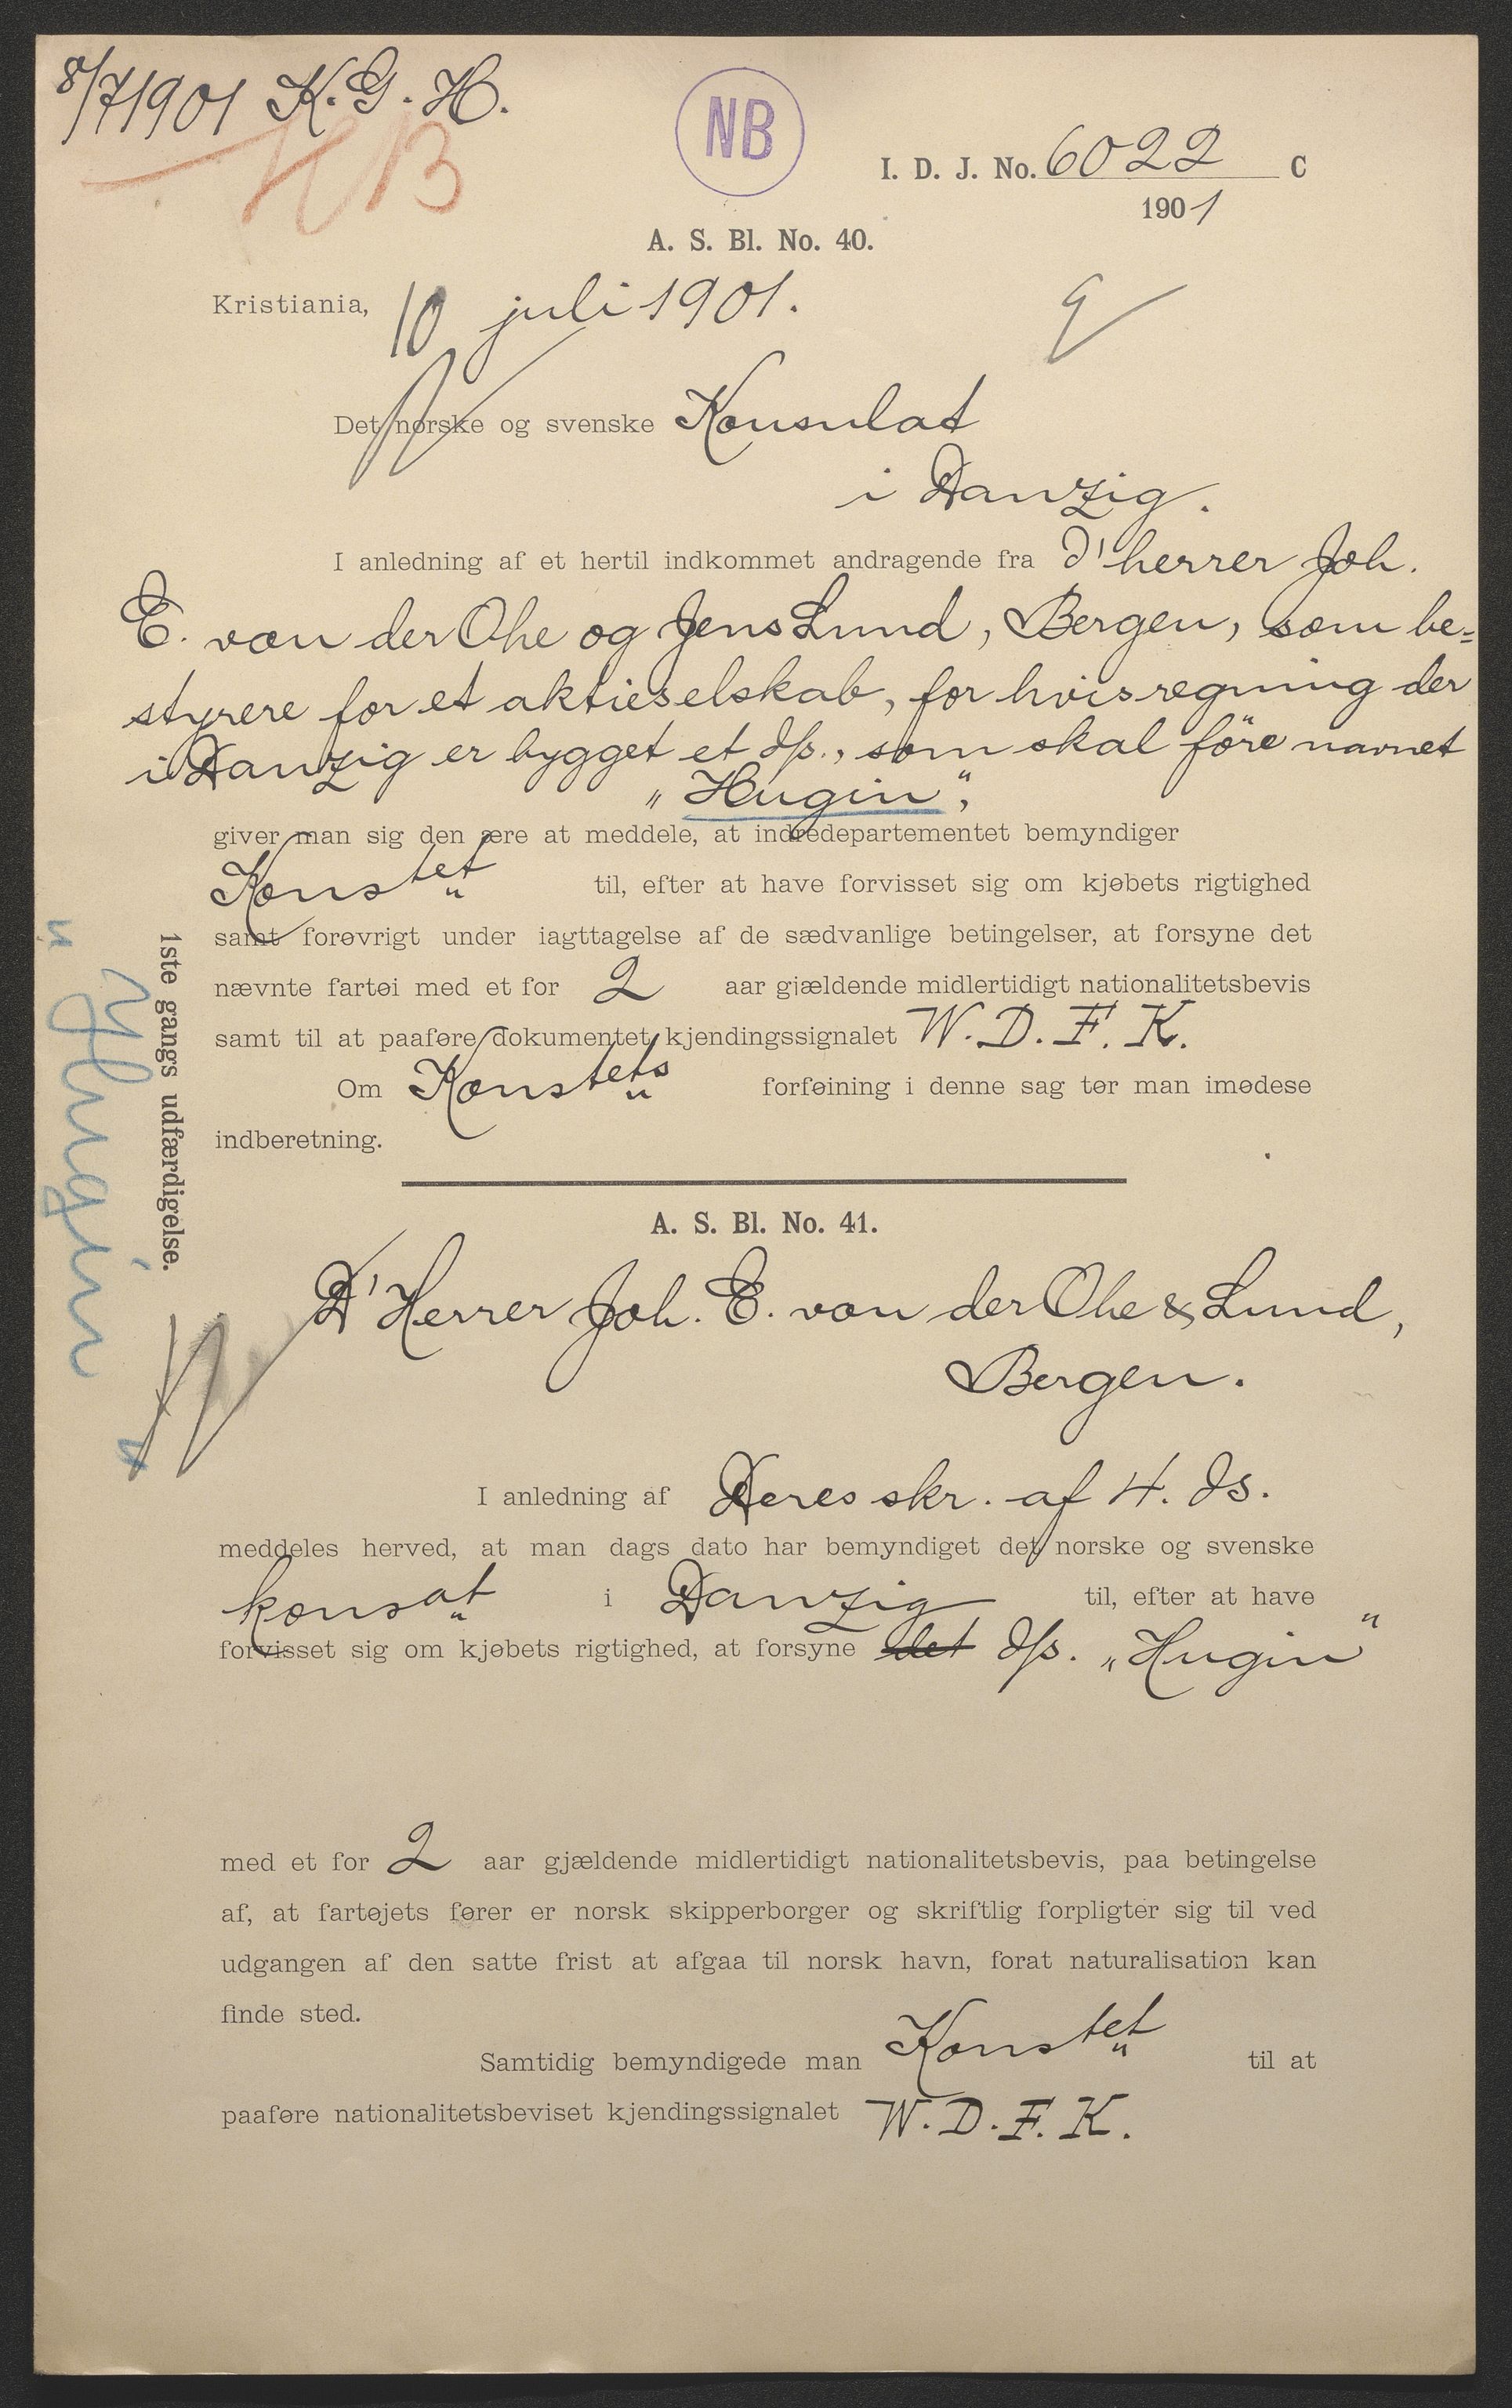 8/7 1901 K. G. H.
NB
I. D. J. No. 6022 C
1901
A. S. Bl. No. 40.
Kristiania, 10 juli 1901.
Det norske og svenske Konsulat
i Danzig.
I anledning af et hertil indkommet andragende fra d'herrer Joh.
E. von der Ohe og Jens Lund, Bergen, som be=
styrere for et aktieselskab, for hvis regning der
i Danzig er bygget et d/s., som skal före navnet
„Hugin“,
giver man sig den ære at meddele, at indredepartementet bemyndiger
Konstet til, efter at have forvisset sig om kjøbets rigtighed
samt forøvrigt under iagttagelse af de sædvanlige betingelser, at forsyne det
nævnte fartøi med et for 2 aar gjældende midlertidigt nationalitetsbevis
samt til at paaføre dokumentet kjendingssignalet W. D. F. K.
Om Konstets forføining i denne sag tør man imødese
indberetning.
1ste gangs udfærdigelse.
„Hugin“
A. S. Bl. No. 41.
D'Herrer Joh. E. von der Ohe & Lund,
Bergen.
I anledning af Deres skr. af 4. ds.
meddeles herved, at man dags dato har bemyndiget det norske og svenske
konsat i Danzig til, efter at have
forvisset sig om kjøbets rigtighed, at forsyne det d/s. „Hugin“
med et for 2 aar gjældende midlertidigt nationalitetsbevis, paa betingelse
af, at fartøjets fører er norsk skipperborger og skriftlig forpligter sig til ved
udgangen af den satte frist at afgaa til norsk havn, forat naturalisation kan
finde sted.
Samtidig bemyndigede man Konstet til at
paaføre nationalitetsbeviset kjendingssignalet W. D. F. K.